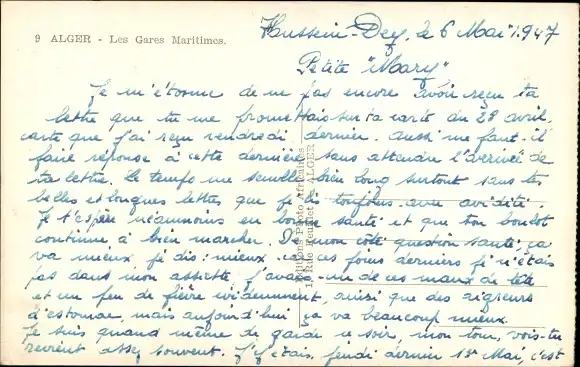 9 ALGER - Les Gares Maritimes.
Hussein-Dey, le 6 Mai 1947
Petite "Mary"
Je m'étonne de ne pas encore avoir reçu ta
lettre que tu me promettais sur ta carte du 28 avril.
carte que j'ai reçu vendredi dernier. aussi me faut-il
faire réponse à cette dernière sans attendre l'arrivée de
ta lettre. Le temps me semble bien long surtout sans tes
belles et longues lettres que je lis toujours avec avidité.
Je t'espère néanmoins en bonne santé et que ton boulot
continue à bien marcher. De mon côté question santé, ça
va mieux je dis: mieux car ces jours derniers je n'étais
pas dans mon assiette, j'avais un de ces maux de tête
et un peu de fièvre évidemment, ainsi que des aigreurs
d'estomac, mais aujourd'hui ça va beaucoup mieux.
Je suis quand même de garde ce soir, mon tour, vois-tu
revient assez souvent. J'y étais, jeudi dernier 1er Mai, c'est
Editions Photo Africaines
10 Rue ALGER